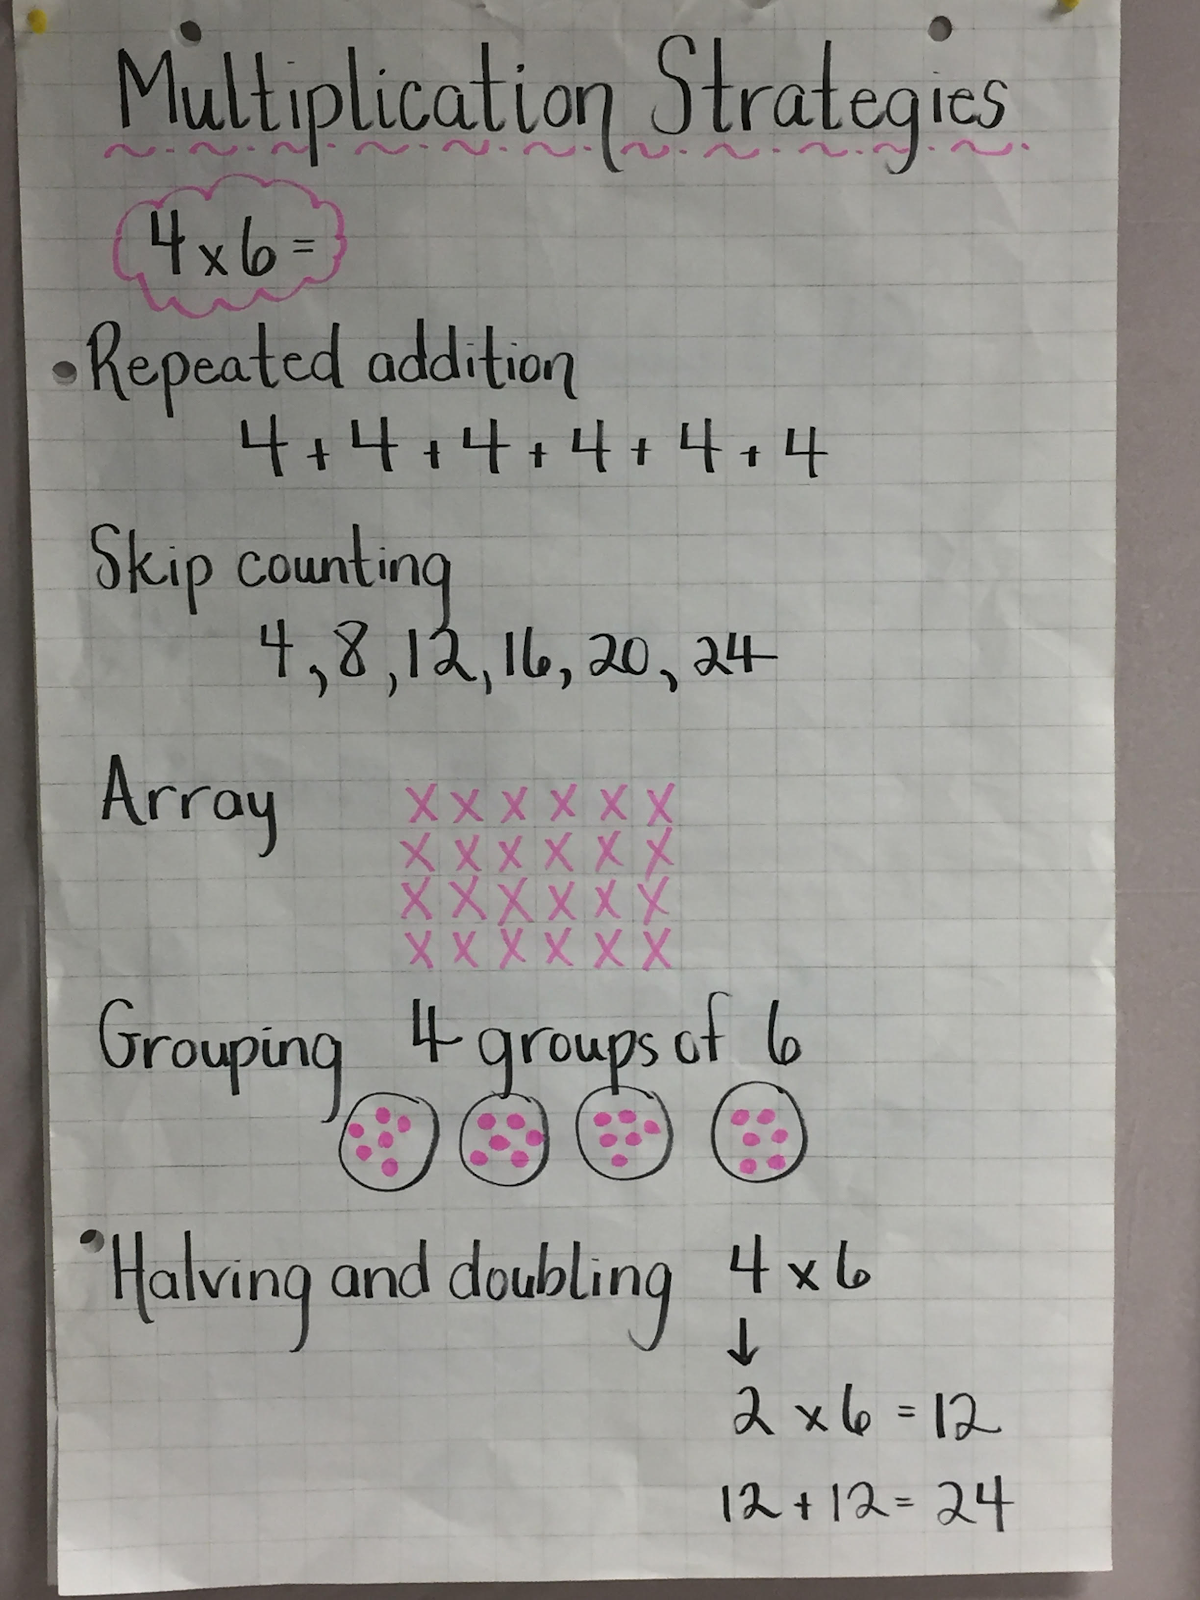 Multiplication Strategies
4 x 6 =
Repeated addition
4 + 4 + 4 + 4 + 4 + 4
Skip counting
4, 8, 12, 16, 20, 24
Array
X X X X X X
X X X X X X
X X X X X X
X X X X X X
Grouping 4 groups of 6
Halving and doubling 4 x 6
↓
2 x 6 = 12
12 + 12 = 24